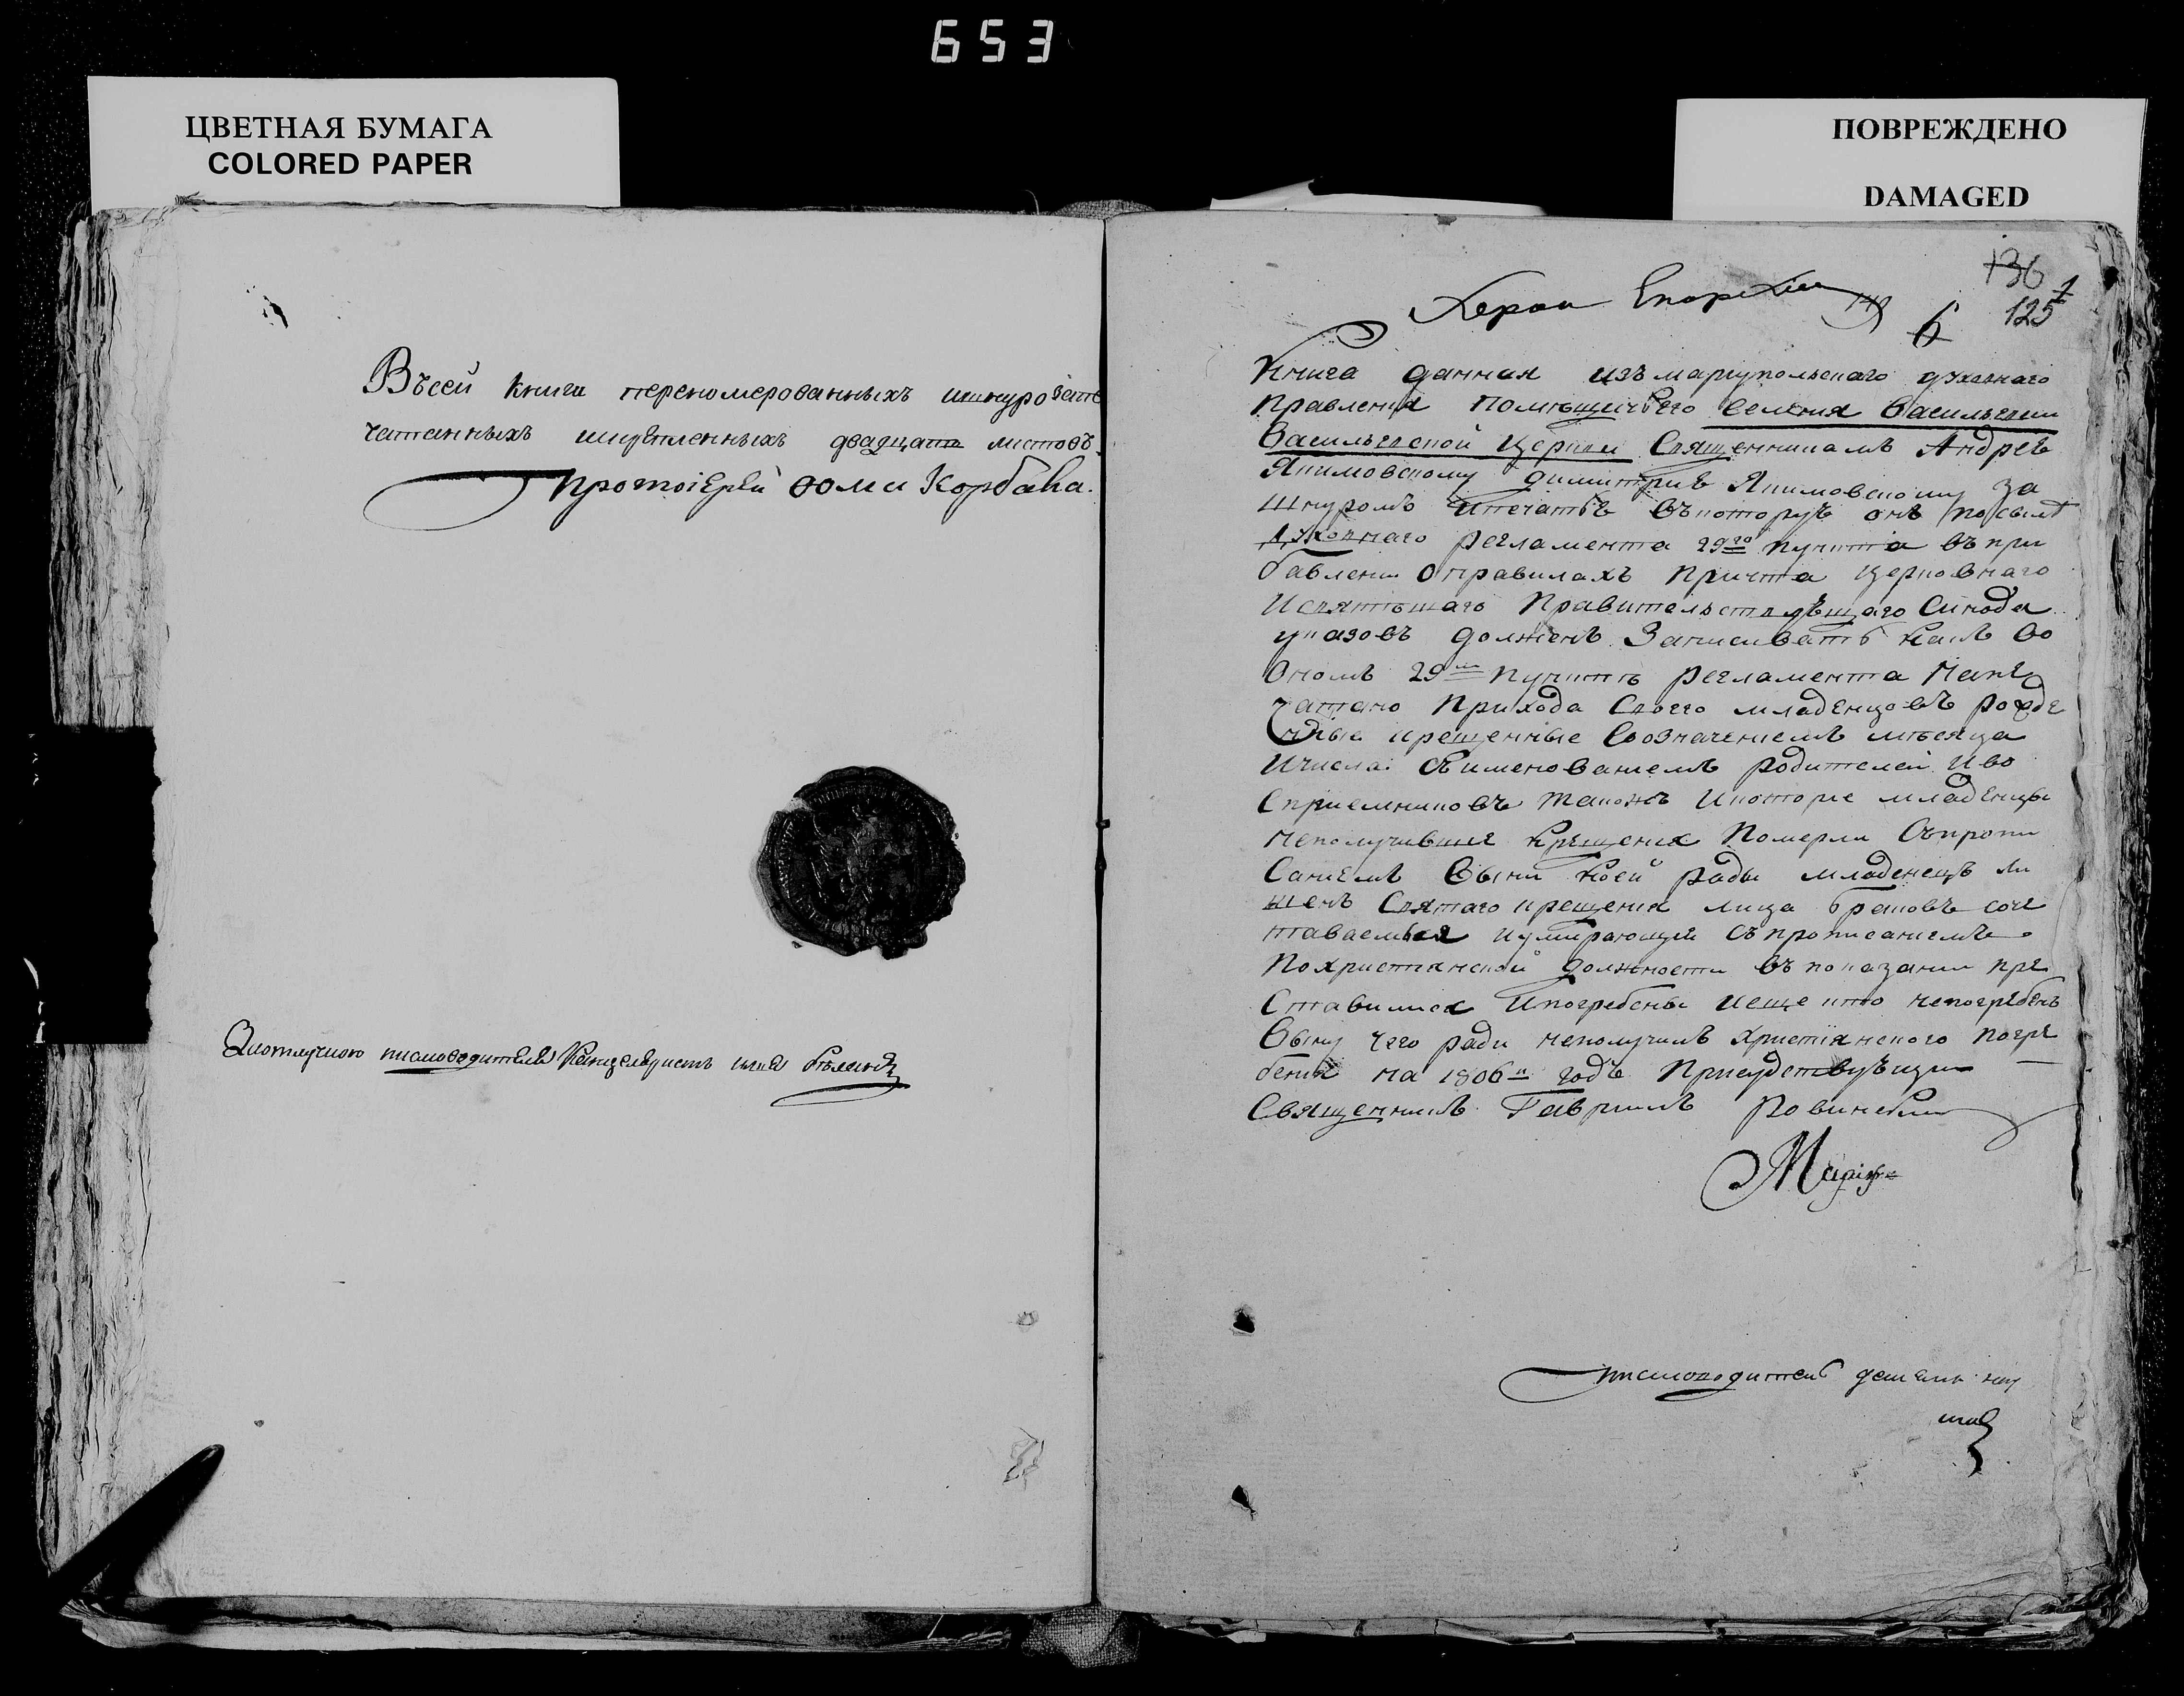 653
ЦВЕТНАЯ БУМАГА
COLORED PAPER
ПОВРЕЖДЕНО
DAMAGED
Въсей книги переномерованныхъ
чатанныхъ двадцать листовъ.
Протоіерей Ѳома Корбака.
писмоводителя Канцеляристъ
136
125
1
6
Херсон Епархии
Книга данная изъ мариупольскаго духовнаго
правления помѣщичьего селения Васильевки
Васильевской Церкви Священникамъ Андрею
Якимовскому Димитрию Якимовскому За
шнуромъ ипечатью Въкоторую онъ посвилѣ
духовнаго регламента 29го пункта въпри
бавлении Оправилахъ Причта Церковнаго
Исвятѣшаго Правительствующаго Синода
указовъ долженъ Записивать какъ во
Ономъ 29м пунктѣ регламента напе
чатано Прихода Своего младенцовъ рожде
ныя крещенные Собозначениемъ мѣсяца
Ичисла. Съименованиемъ родителей Иво
Сприемниковъ такожъ Икоторие младенцы
неполучившие крещения Померли Съпропи
Саниемъ Вины коей рады младенецъ ли
шенъ Святаго крещения лица браковъ соче
таваемыя иумирающии съпрописаниемъ
Похристианской должности въпоказании пре
Ставилися Ипогребены иеще кто непогребенъ
Вину чего ради неполучилъ христіянского погре
бения на 1806й годъ Присудствующии
Священникъ Гавриилъ Ровинский
Мариу=
писмоводитель